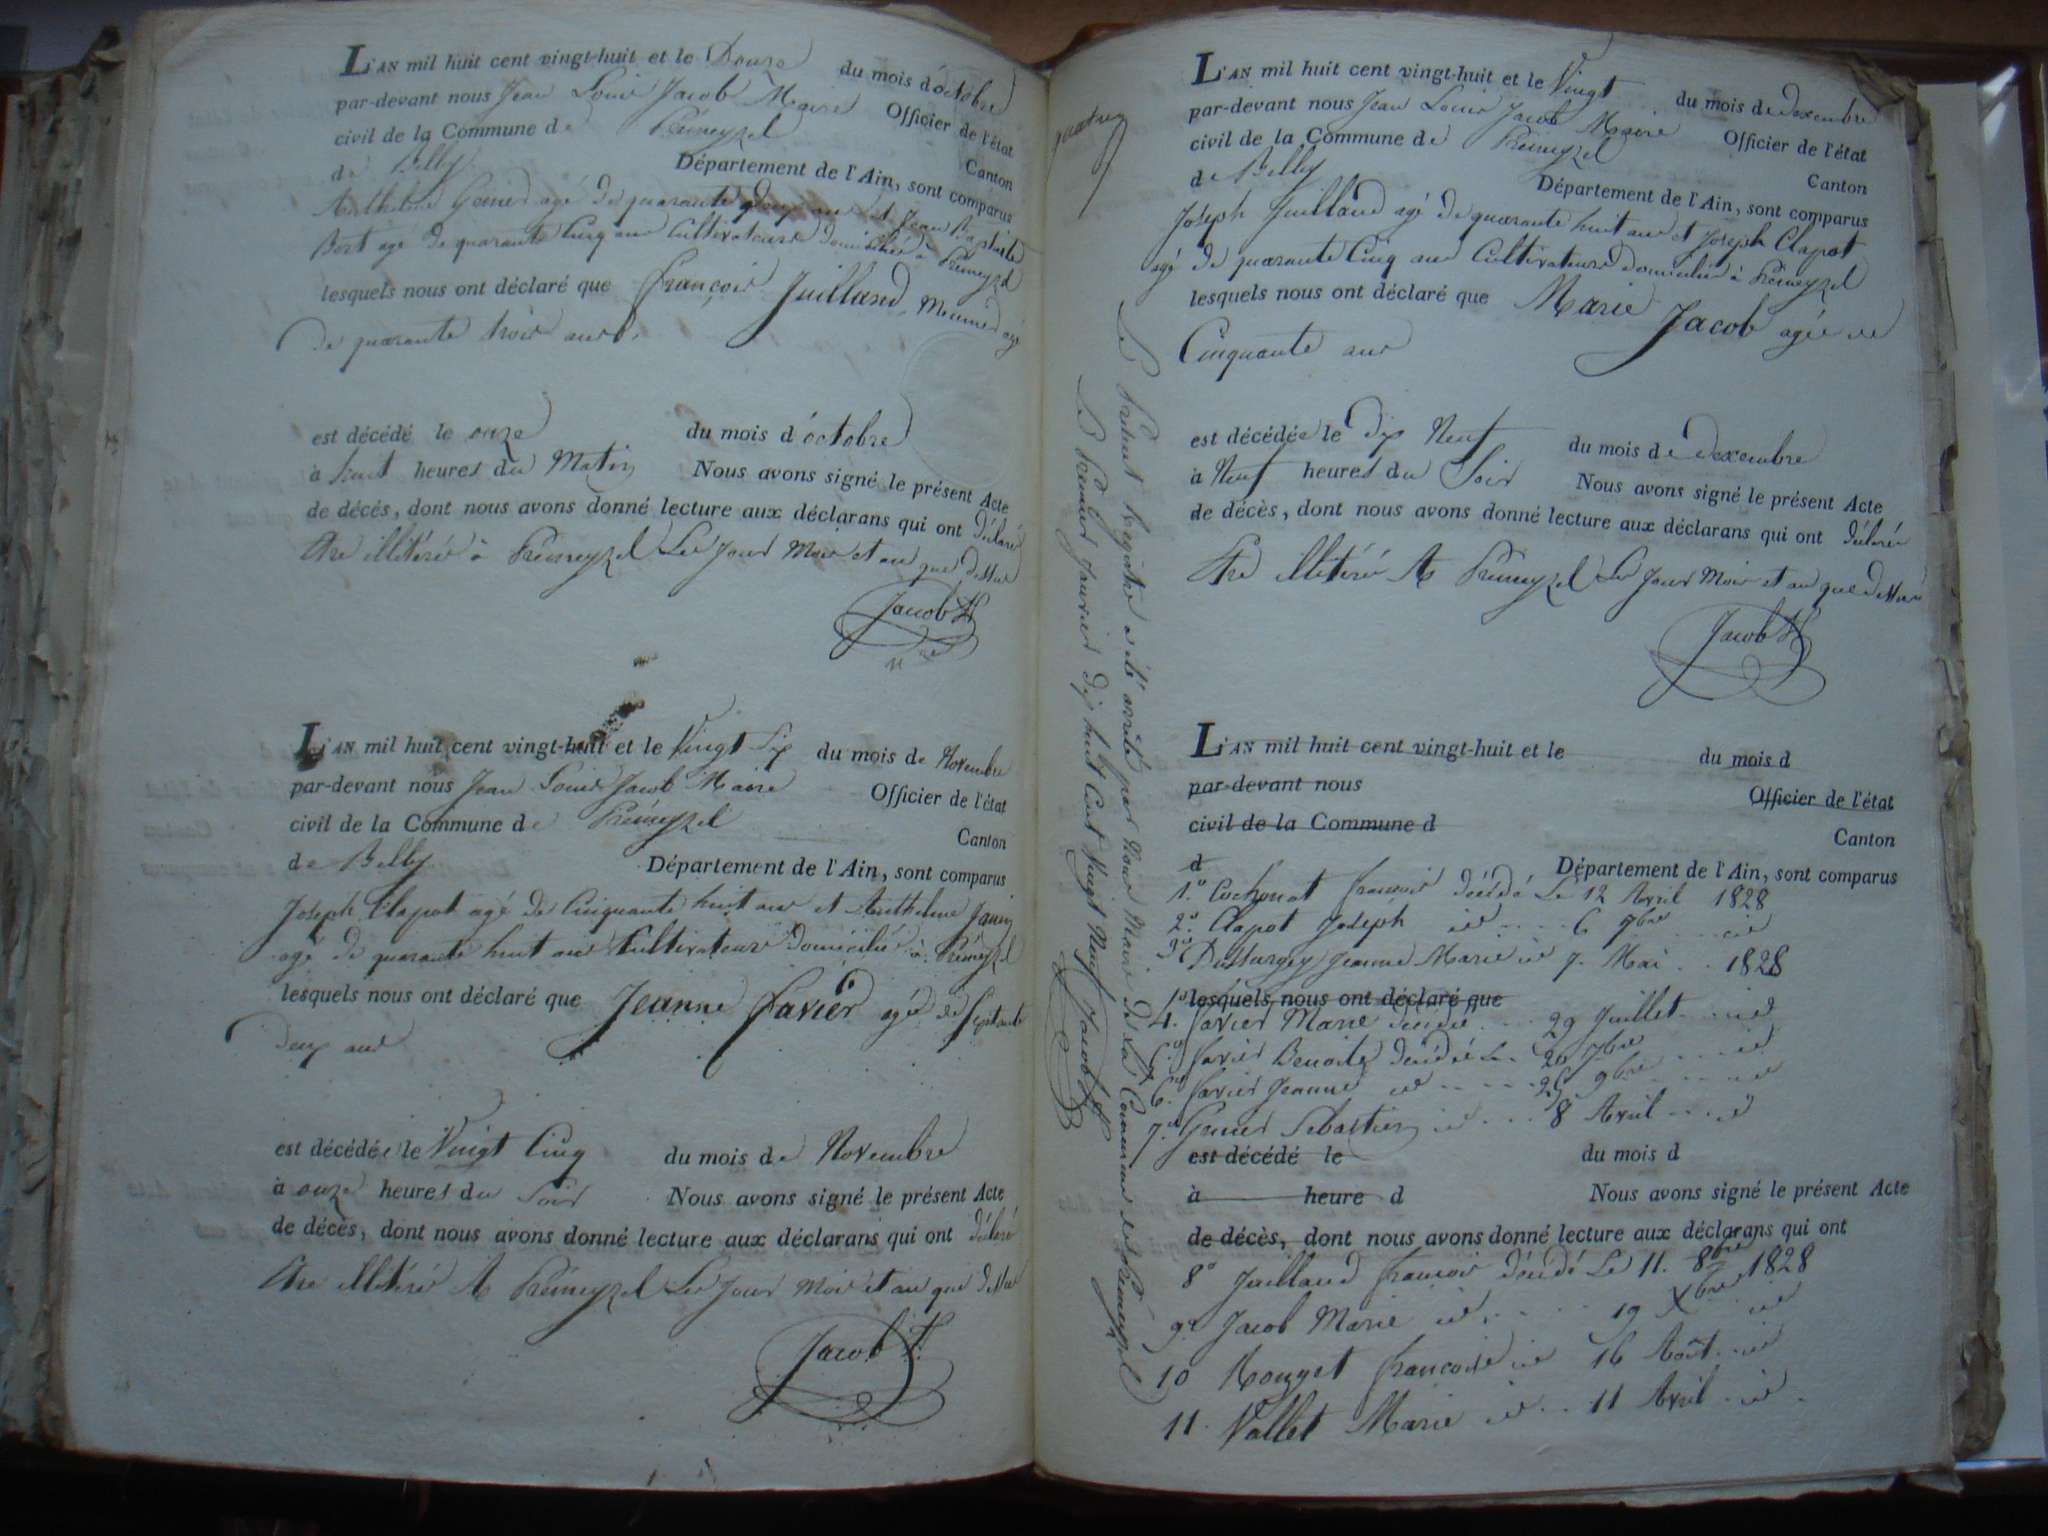 L'AN mil huit cent vingt-huit et le Douze du mois d'octobre
par-devant nous Jean Louis Jacob Maire Officier de l'état
civil de la Commune de Prémeyzel Canton
de Belley Département de l'Ain, sont comparus
Anthelme Grinier agé de quarante ans et Jean Baptiste
Bort agé de quarante Cinq ans Cultivateurs domiciliés à Prémeyzel
lesquels nous ont déclaré que françois Juilland, Meunier agé
de quarante trois ans.
est décédé le onze du mois d'octobre
à huit heures du Matin Nous avons signé le présent Acte
de décès, dont nous avons donné lecture aux déclarans qui ont déclaré
Etre illitéré à Prémeyzel Les Jour Mois et an que dessus
Jacob
L'AN mil huit cent vingt-huit et le Vingt Six du mois de Novembre
par-devant nous Jean Louis Jacob Maire Officier de l'état
civil de la Commune de Prémeyzel Canton
de Belley Département de l'Ain, sont comparus
Joseph Clapot agé de Cinquante huit ans et Anthelme Janin
agé de quarante huit ans Cultivateurs domiciliés à Prémeyzel
lesquels nous ont déclaré que Jeanne favier agée de Septante
Deux ans
est décédée le Vingt Cinq du mois de Novembre
à onze heures du Soir Nous avons signé le présent Acte
de décès, dont nous avons donné lecture aux déclarans qui ont déclaré
Etre illitéré A Prémeyzel Les Jour Mois et an que dessus
Jacob
Le présent Registre a été arrêté par Nous Maire de La Commune de Prémeyzel
Le Premier Janvier dix huit Cent Vingt Neuf Jacob
L'AN mil huit cent vingt-huit et le Vingt du mois de Dexembre
par-devant nous Jean Louis Jacob Maire Officier de l'état
civil de la Commune de Prémeyzel Canton
de Belley Département de l'Ain, sont comparus
Joseph Juilland agé de quarante huit ans et Joseph Clapot
agé de quarante Cinq ans Cultivateurs domiciliés à Prémeyzel
lesquels nous ont déclaré que Marie Jacob agée de
Cinquante ans
est décédée le dix Neuf du mois de Dexembre
à Neuf heures du Soir Nous avons signé le présent Acte
de décès, dont nous avons donné lecture aux déclarans qui ont déclaré
Etre illitéré A Prémeyzel Les Jour Mois et an que dessus
Jacob
L'AN mil huit cent vingt-huit et le du mois d
par-devant nous Officier de l'état
civil de la Commune d Canton
d Département de l'Ain, sont comparus
1.º Cochonat françois décédé Le 12 Avril 1828
2.º Clapot Joseph id 6 7bre id
3º Dussurgey Jeanne Marie id 7. Mai 1828
lesquels nous ont déclaré que
4.º favier Marie décédée 29 Juillet id
5.º favier Benoite décédée Le 20 7bre id
6.º favier Jeanne id 25 9bre id
7.º Grinier Sebastien id 8 Avril id
est décédé le du mois d
à heure d Nous avons signé le présent Acte
de décès, dont nous avons donné lecture aux déclarans qui ont
8º Juilland françois décédé Le 11. 8bre 1828
9º Jacob Marie id 19 Xbre id
10 Rouget françoise id 16 Août id
11. Vallet Marie id 11 Avril id